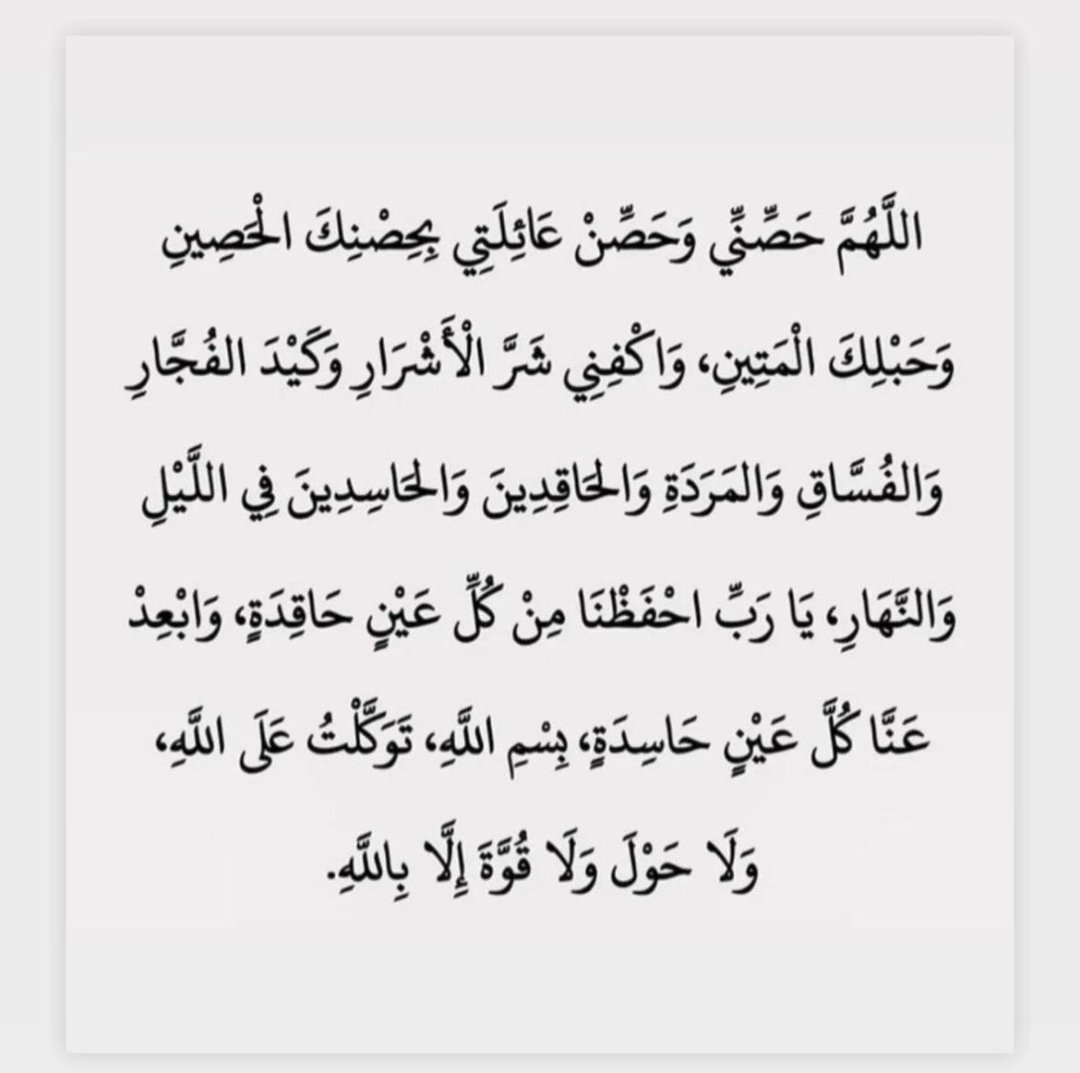 اللَّهُمَّ حَصِّنِّي وَحَصِّنْ عَائِلَتِي بِحِصْنِكَ الْحَصِينِ
وَحَبْلِكَ الْمَتِينِ، وَاكْفِنِي شَرَّ الْأَشْرَارِ وَكَيْدَ الفُجَّارِ
وَالفُسَّاقِ وَالمَرَدَةِ وَالحَاقِدِينَ وَالحَاسِدِينَ فِي اللَّيْلِ
وَالنَّهَارِ، يَا رَبِّ احْفَظْنَا مِنْ كُلِّ عَيْنٍ حَاقِدَةٍ، وَابْعِدْ
عَنَّا كُلَّ عَيْنٍ حَاسِدَةٍ، بِسْمِ اللَّهِ، تَوَكَّلْتُ عَلَى اللَّهِ،
وَلَا حَوْلَ وَلَا قُوَّةَ إِلَّا بِاللَّهِ.